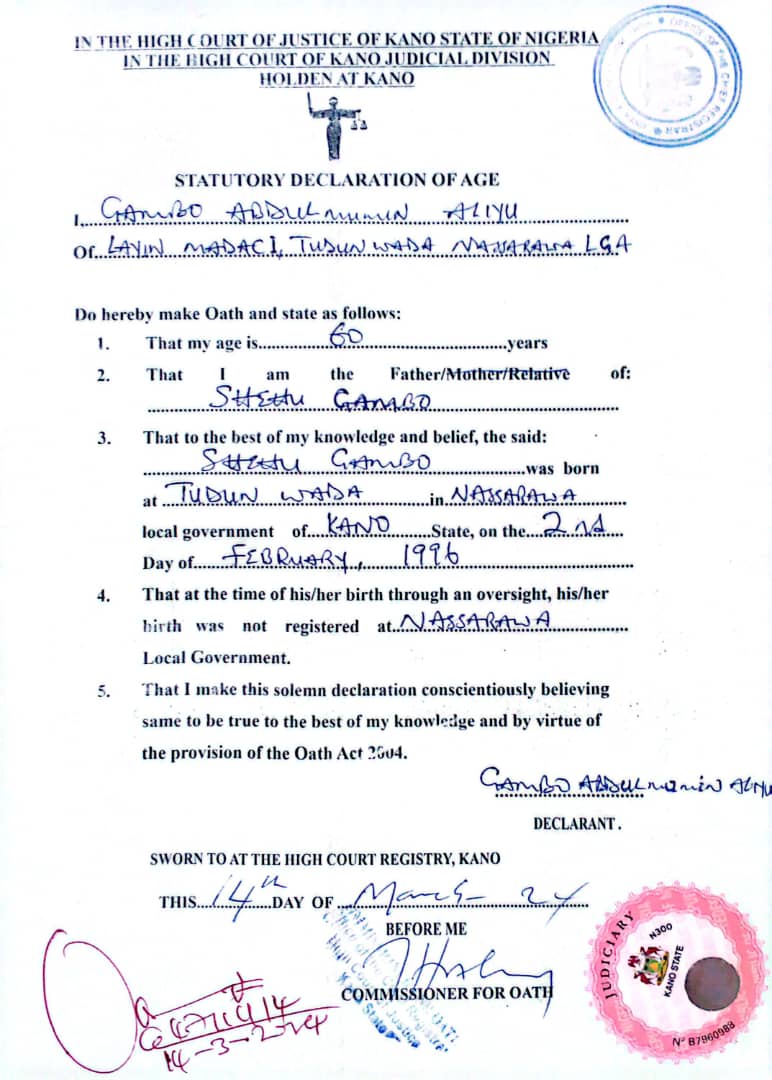 IN THE HIGH COURT OF JUSTICE OF KANO STATE OF NIGERIA
IN THE HIGH COURT OF KANO JUDICIAL DIVISION
HOLDEN AT KANO
OFFICE OF THE CHIEF REGISTRAR
STATUTORY DECLARATION OF AGE
I, GAMBO ABDULMUMIN ALIYU
Of LAYIN MADACI, TUDUN WADA NASSARAWA LGA
Do hereby make Oath and state as follows:
1. That my age is 60 years
2. That I am the Father/Mother/Relative of:
SHEHU GAMBO
3. That to the best of my knowledge and belief, the said:
SHEHU GAMBO was born
at TUDUN WADA in NASSARAWA
local government of KANO State, on the 2nd
Day of FEBRUARY, 1996
4. That at the time of his/her birth through an oversight, his/her
birth was not registered at NASSARAWA
Local Government.
5. That I make this solemn declaration conscientiously believing
same to be true to the best of my knowledge and by virtue of
the provision of the Oath Act 2004.
GAMBO ABDULMUMIN ALIYU
DECLARANT.
SWORN TO AT THE HIGH COURT REGISTRY, KANO
THIS 14th DAY OF March 24
BEFORE ME
COMMISSIONER FOR OATH
High Court of Justice
Kano State
14-3-2024
JUDICIARY
N300
KANO STATE
Nº B7960988